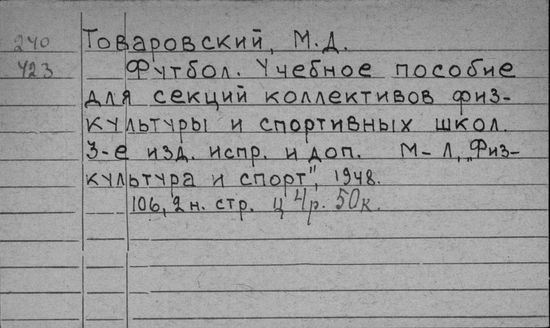 240 Товаровский, М.Д.
423 Футбол. Учебное пособие
для секций коллективов физ-
культуры и спортивных школ.
3-е изд. испр. и доп. М-Л, „Физ-
культура и спорт", 1948.
106, 2 н. стр. ц 4р. 50к.